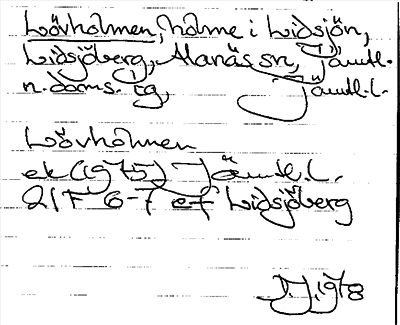 Lövholmen, holme i Lidsjön,
Lidsjöberg, Alanäs sn, Jämtl.
n. doms. tg, Jämtl. l.
Lövholmen
ek (1975) Jämtl. l.
21F 6-7 e-f Lidsjöberg
1978